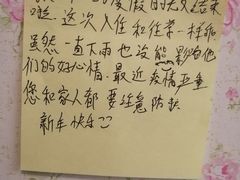 假的天结束
啦 这次入住和往常一样
虽然一直下雨也没能影响他
们的好心情.最近疫情严重
您和家人都要注意防护
新年快乐